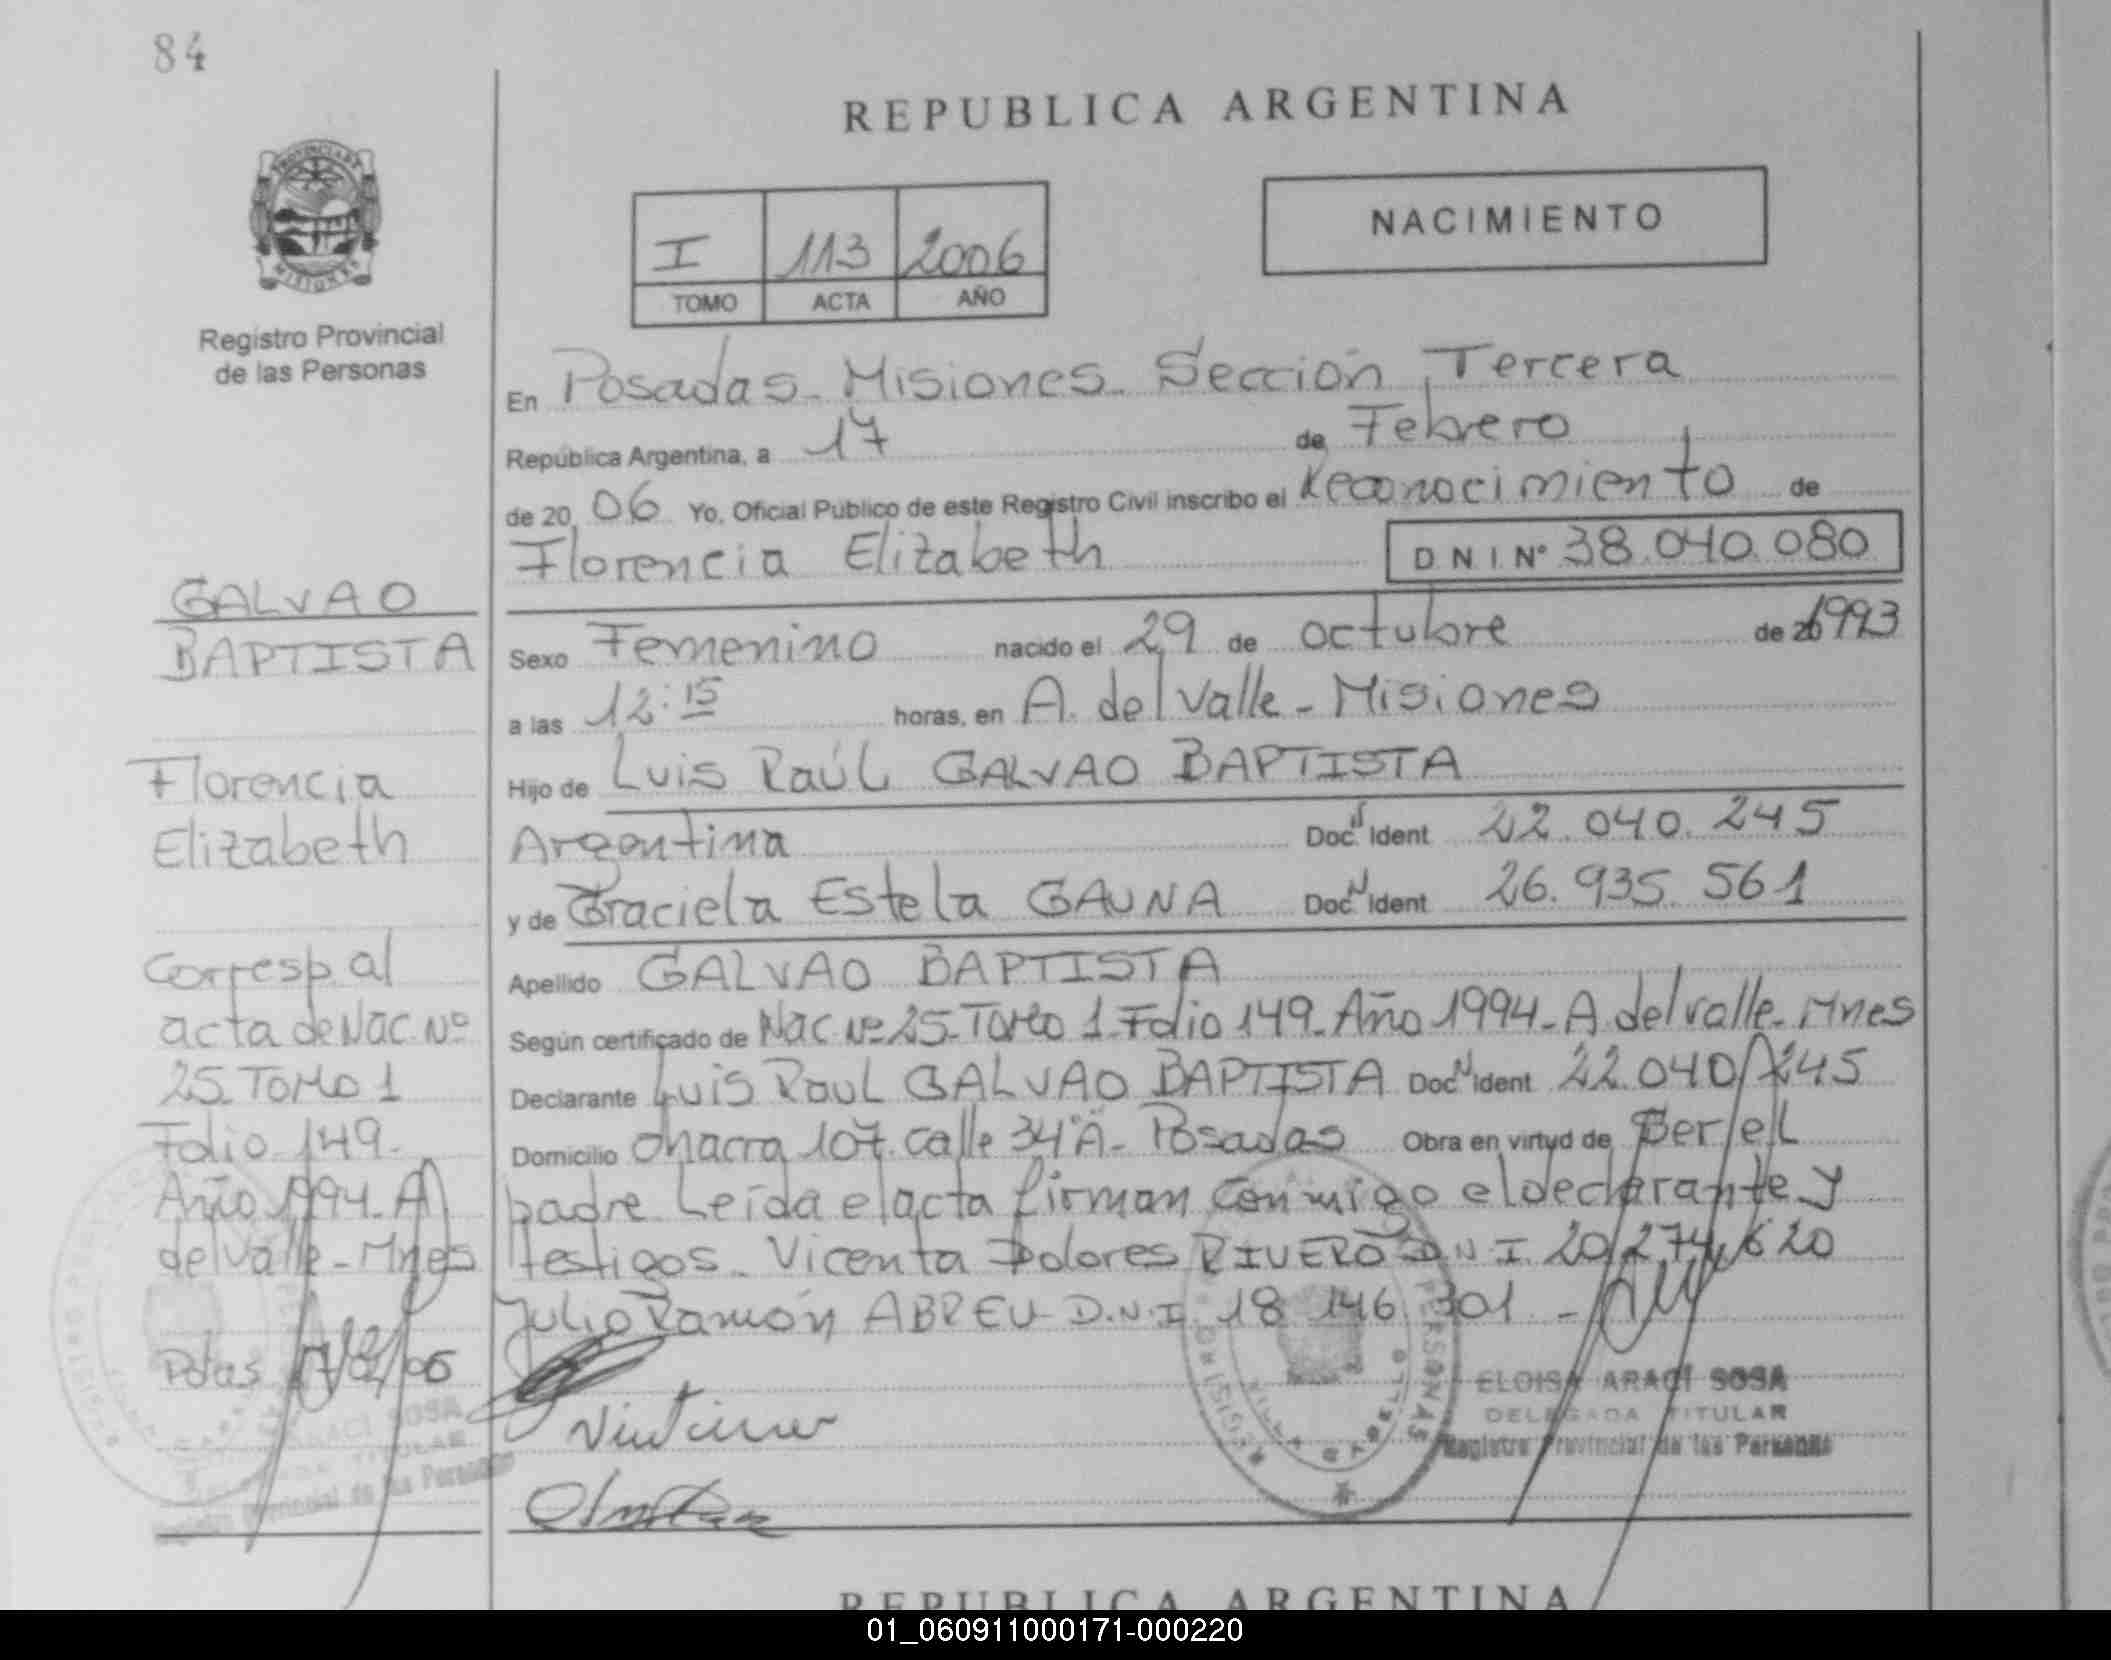 84
REPUBLICA ARGENTINA
PROVINCIA DE
MISIONES
Registro Provincial
de las Personas
I 113 2006
TOMO ACTA AÑO
NACIMIENTO
En Posadas - Misiones - Sección Tercera
República Argentina, a 17 de Febrero
de 20 06 Yo, Oficial Público de este Registro Civil inscribo el Reconocimiento de
Florencia Elizabeth D N I Nº 38.040.080
Sexo Femenino nacido el 29 de octubre de 1993
a las 12:15 horas, en A. del Valle - Misiones
Hijo de Luis Raúl GALVAO BAPTISTA
Argentina Doc. Ident 22.040.245
y de Graciela Estela GAUNA Doc. Ident 26.935.561
Apellido GALVAO BAPTISTA
Según certificado de Nac Nº 25 - Tomo 1 Folio 149 - Año 1994 - A. del valle - Mnes
Declarante Luis Raul GALVAO BAPTISTA Doc Ident 22.040.245
Domicilio chacra 107. calle 34 A - Posadas Obra en virtud de Ser el
padre Leída el acta firman conmigo el declarante y
testigos - Vicenta Dolores RIVERO D.N.I. 20.274.620
Julio Ramón ABREU D.N.I. 18 146 301 -
ELOISA ARACÍ SOSA
DELEGADA TITULAR
Registro Provincial de las Personas
GALVAO
BAPTISTA
Florencia
Elizabeth
Corresp. al
acta de Nac. Nº
25 - Tomo 1
Folio 149 -
Año 1994 - A
del valle - Mnes
Pdas 17/02/06
ARACÍ SOSA
TITULAR
Registro Provincial de las Personas
REPUBLICA ARGENTINA
01_060911000171-000220